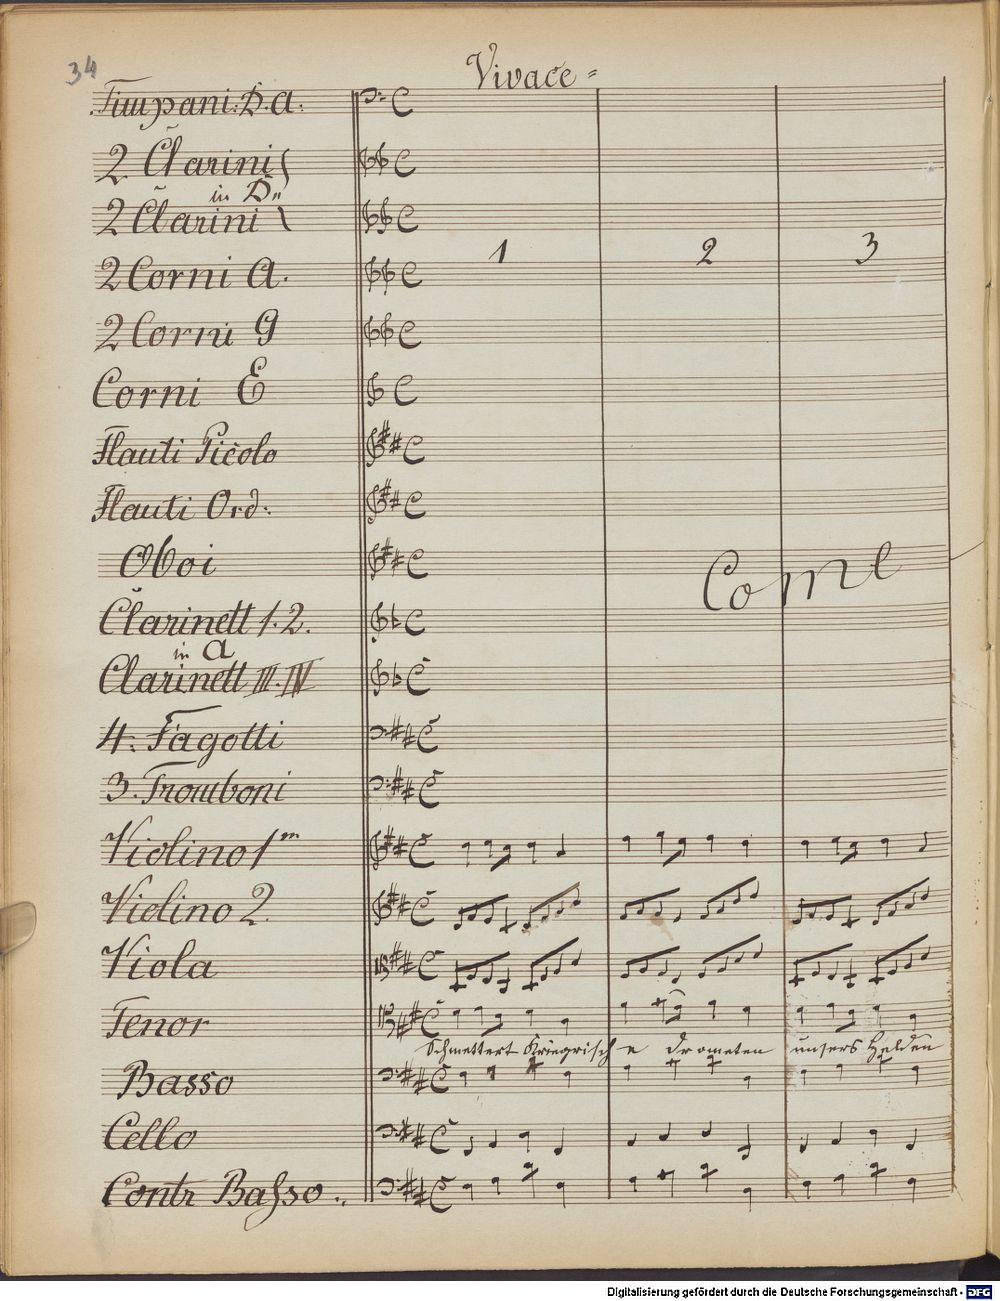 34
Vivace
Timpani: D. A.
2 Clarini
in D
2 Clarini
1 2 3
2 Corni A.
2 Corni G
Corni E
Flauti Picolo
Flauti Ord:
Oboi
Come
Clarinett 1. 2.
in A
Clarinett III. IV
4. Fagotti
3. Tromboni
Violino 1m
Violino 2.
Viola
Tenor
Schmettert Kriegrisch e Drometen unsers Helden
Basso
Cello
Contr Basso.
Digitalisierung gefördert durch die Deutsche Forschungsgemeinschaft - DFG